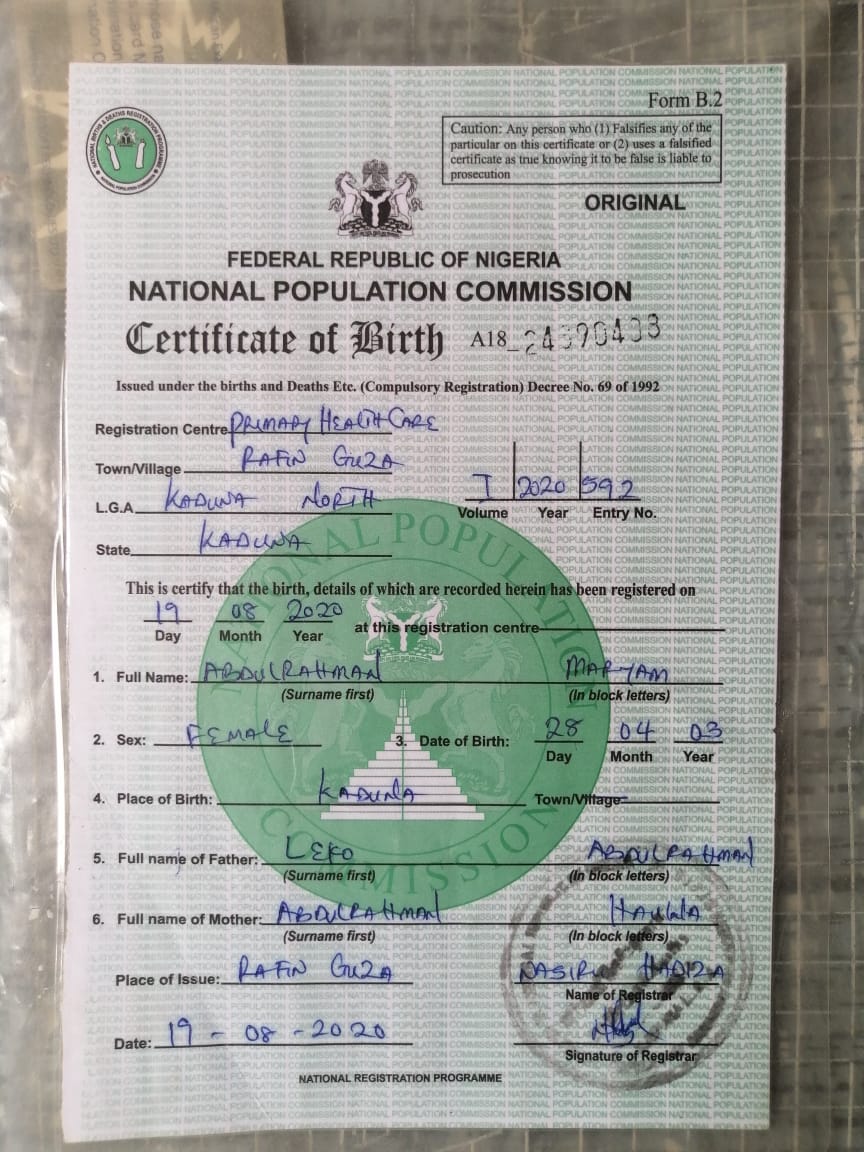 Form B.2
Caution: Any person who (1) Falsifies any of the
particular on this certificate or (2) uses a falsified
certificate as true knowing it to be false is liable to
prosecution
NATIONAL BIRTHS & DEATHS REGISTRATION PROGRAMME
NATIONAL POPULATION COMMISSION
ORIGINAL
FEDERAL REPUBLIC OF NIGERIA
NATIONAL POPULATION COMMISSION
Certificate of Birth A18_
Issued under the births and Deaths Etc. (Compulsory Registration) Decree No. 69 of 1992
Registration Centre PRIMARY HEALTH CARE
Town/Village RAFIN GUZA
L.G.A KADUNA NORTH
I 2020 592
Volume Year Entry No.
State KADUNA
This is certify that the birth, details of which are recorded herein has been registered on
19 08 2020 at this registration centre
Day Month Year
1. Full Name: ABDULRAHMAN MARYAM
(Surname first) (In block letters)
2. Sex: FEMALE 3. Date of Birth: 28 04 03
Day Month Year
4. Place of Birth: KADUNA Town/Village
5. Full name of Father: LEKO ABDULRAHMAN
(Surname first) (In block letters)
6. Full name of Mother: ABDULRAHMAN HAUWA
(Surname first) (In block letters)
Place of Issue: RAFIN GUZA NASIRU HADIZA
Name of Registrar
Date: 19 - 08 - 2020
Signature of Registrar
NATIONAL REGISTRATION PROGRAMME